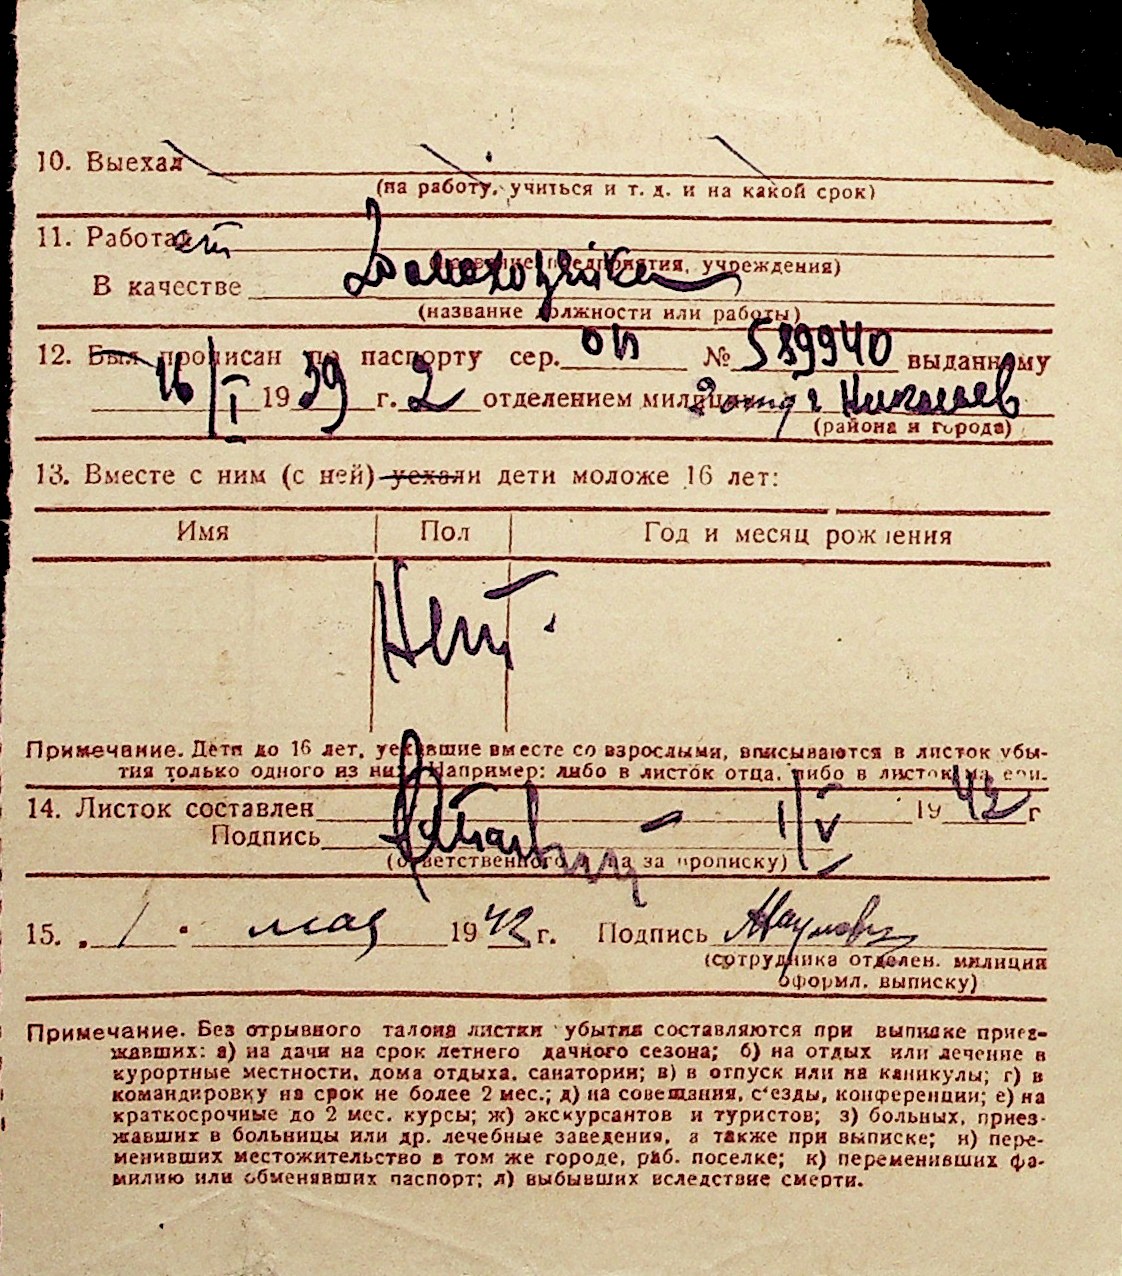 10. Выехал
(на работу, учиться и т. д. и на какой срок)
11. Работает
(название предприятия, учреждения)
В качестве Домохозяйка
(название должности или работы)
12. Был прописан по паспорту сер. ОП № 589940 выданному
16/I 1939 г. 2 отделением милиции г Николаев
(района и города)
13. Вместе с ним (с ней) уехали дети моложе 16 лет:
Имя Пол Год и месяц рождения
Нет.
Примечание. Дети до 16 лет, уехавшие вместе со взрослыми, вписываются в листок убы-
тия только одного из них. Например: либо в листок отца, либо в листок
14. Листок составлен 1/V 1942 г
Подпись
(ответственного за прописку)
15. 1 мая 1942 г. Подпись
(сотрудника отделен. милиции
оформл. выписку)
Примечание. Без отрывного талона листки убытия составляются при выписке приез-
жавших: а) на дачи на срок летнего дачного сезона; б) на отдых или лечение в
курортные местности, дома отдыха, санатории; в) в отпуск или на каникулы; г) в
командировку на срок не более 2 мес.; д) на совещания, с'езды, конференции; е) на
краткосрочные до 2 мес. курсы; ж) экскурсантов и туристов; з) больных, приез-
жавших в больницы или др. лечебные заведения, а также при выписке; и) пере-
менивших местожительство в том же городе, раб. поселке; к) переменивших фа-
милию или обменявших паспорт; л) выбывших вследствие смерти.